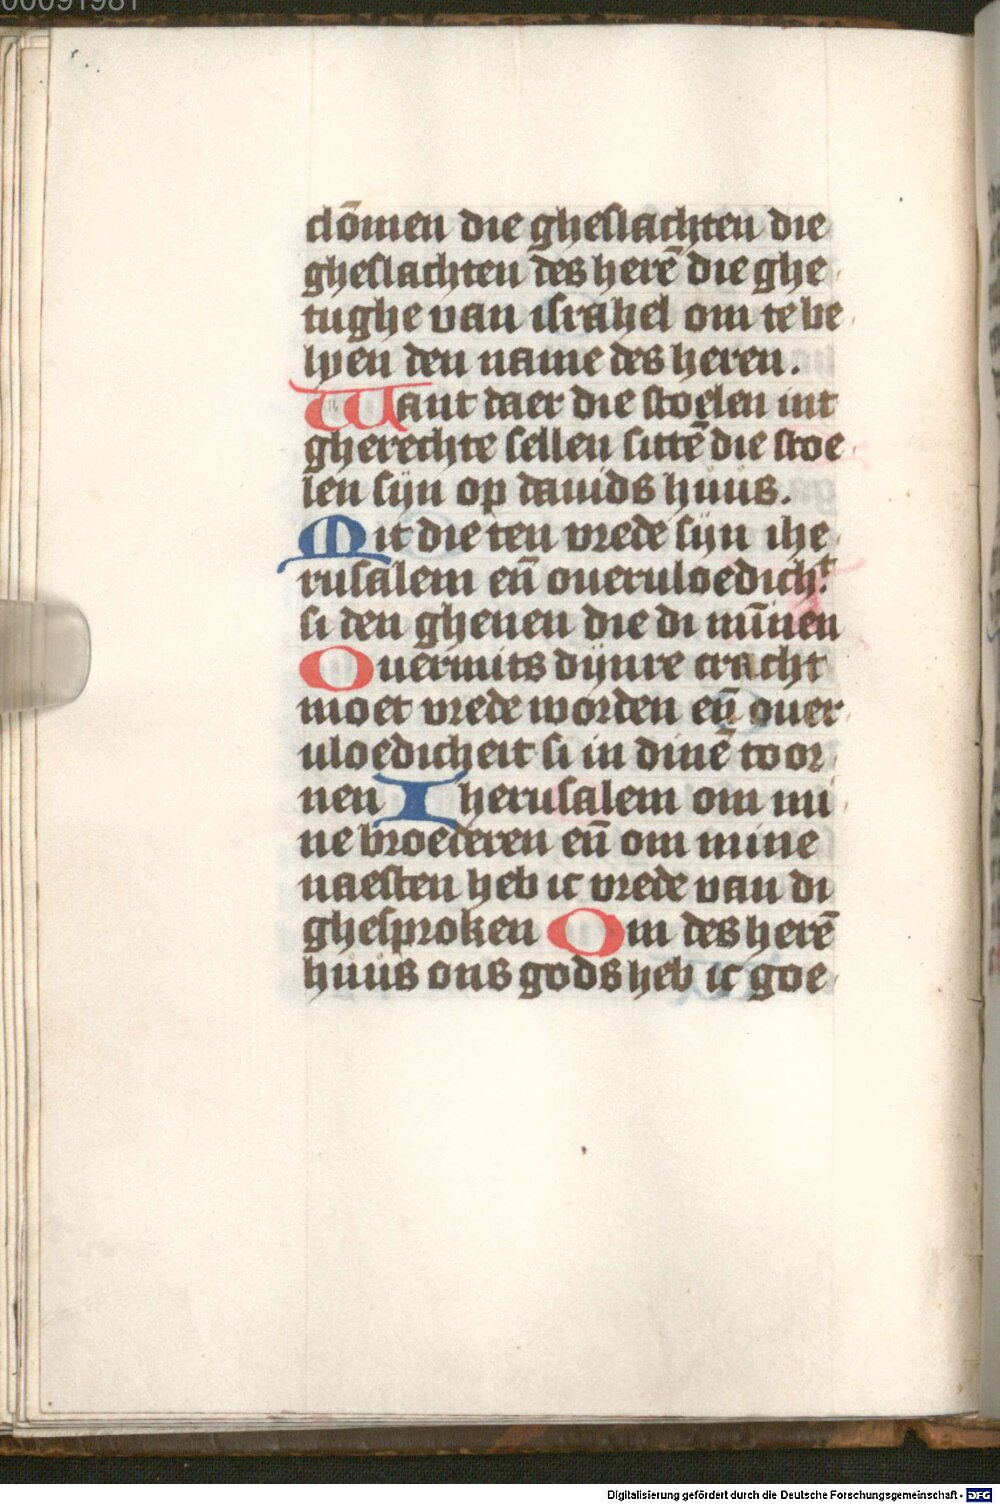 00091981
clōmen die gheslachten die
gheslachten des herē die ghe
tughe van israhel om te be
lyen den name des heren.
Want daer die stoelen int
gherechte sellen sittē die stoe
len sijn op dauids huus.
Mit die ten vrede sijn ihe
rusalem eñ oueruloedichᵗ
si den ghenen die di mīnen
Ouermits dijnre cracht
moet vrede worden eñ ouer
uloedicheit si in dinē toor
nen Iherusalem om mi
ne broederen eñ om mine
naesten heb ic vrede van di
ghesproken Om des herē
huus ons gods heb ic goe
Digitalisierung gefördert durch die Deutsche Forschungsgemeinschaft - DFG